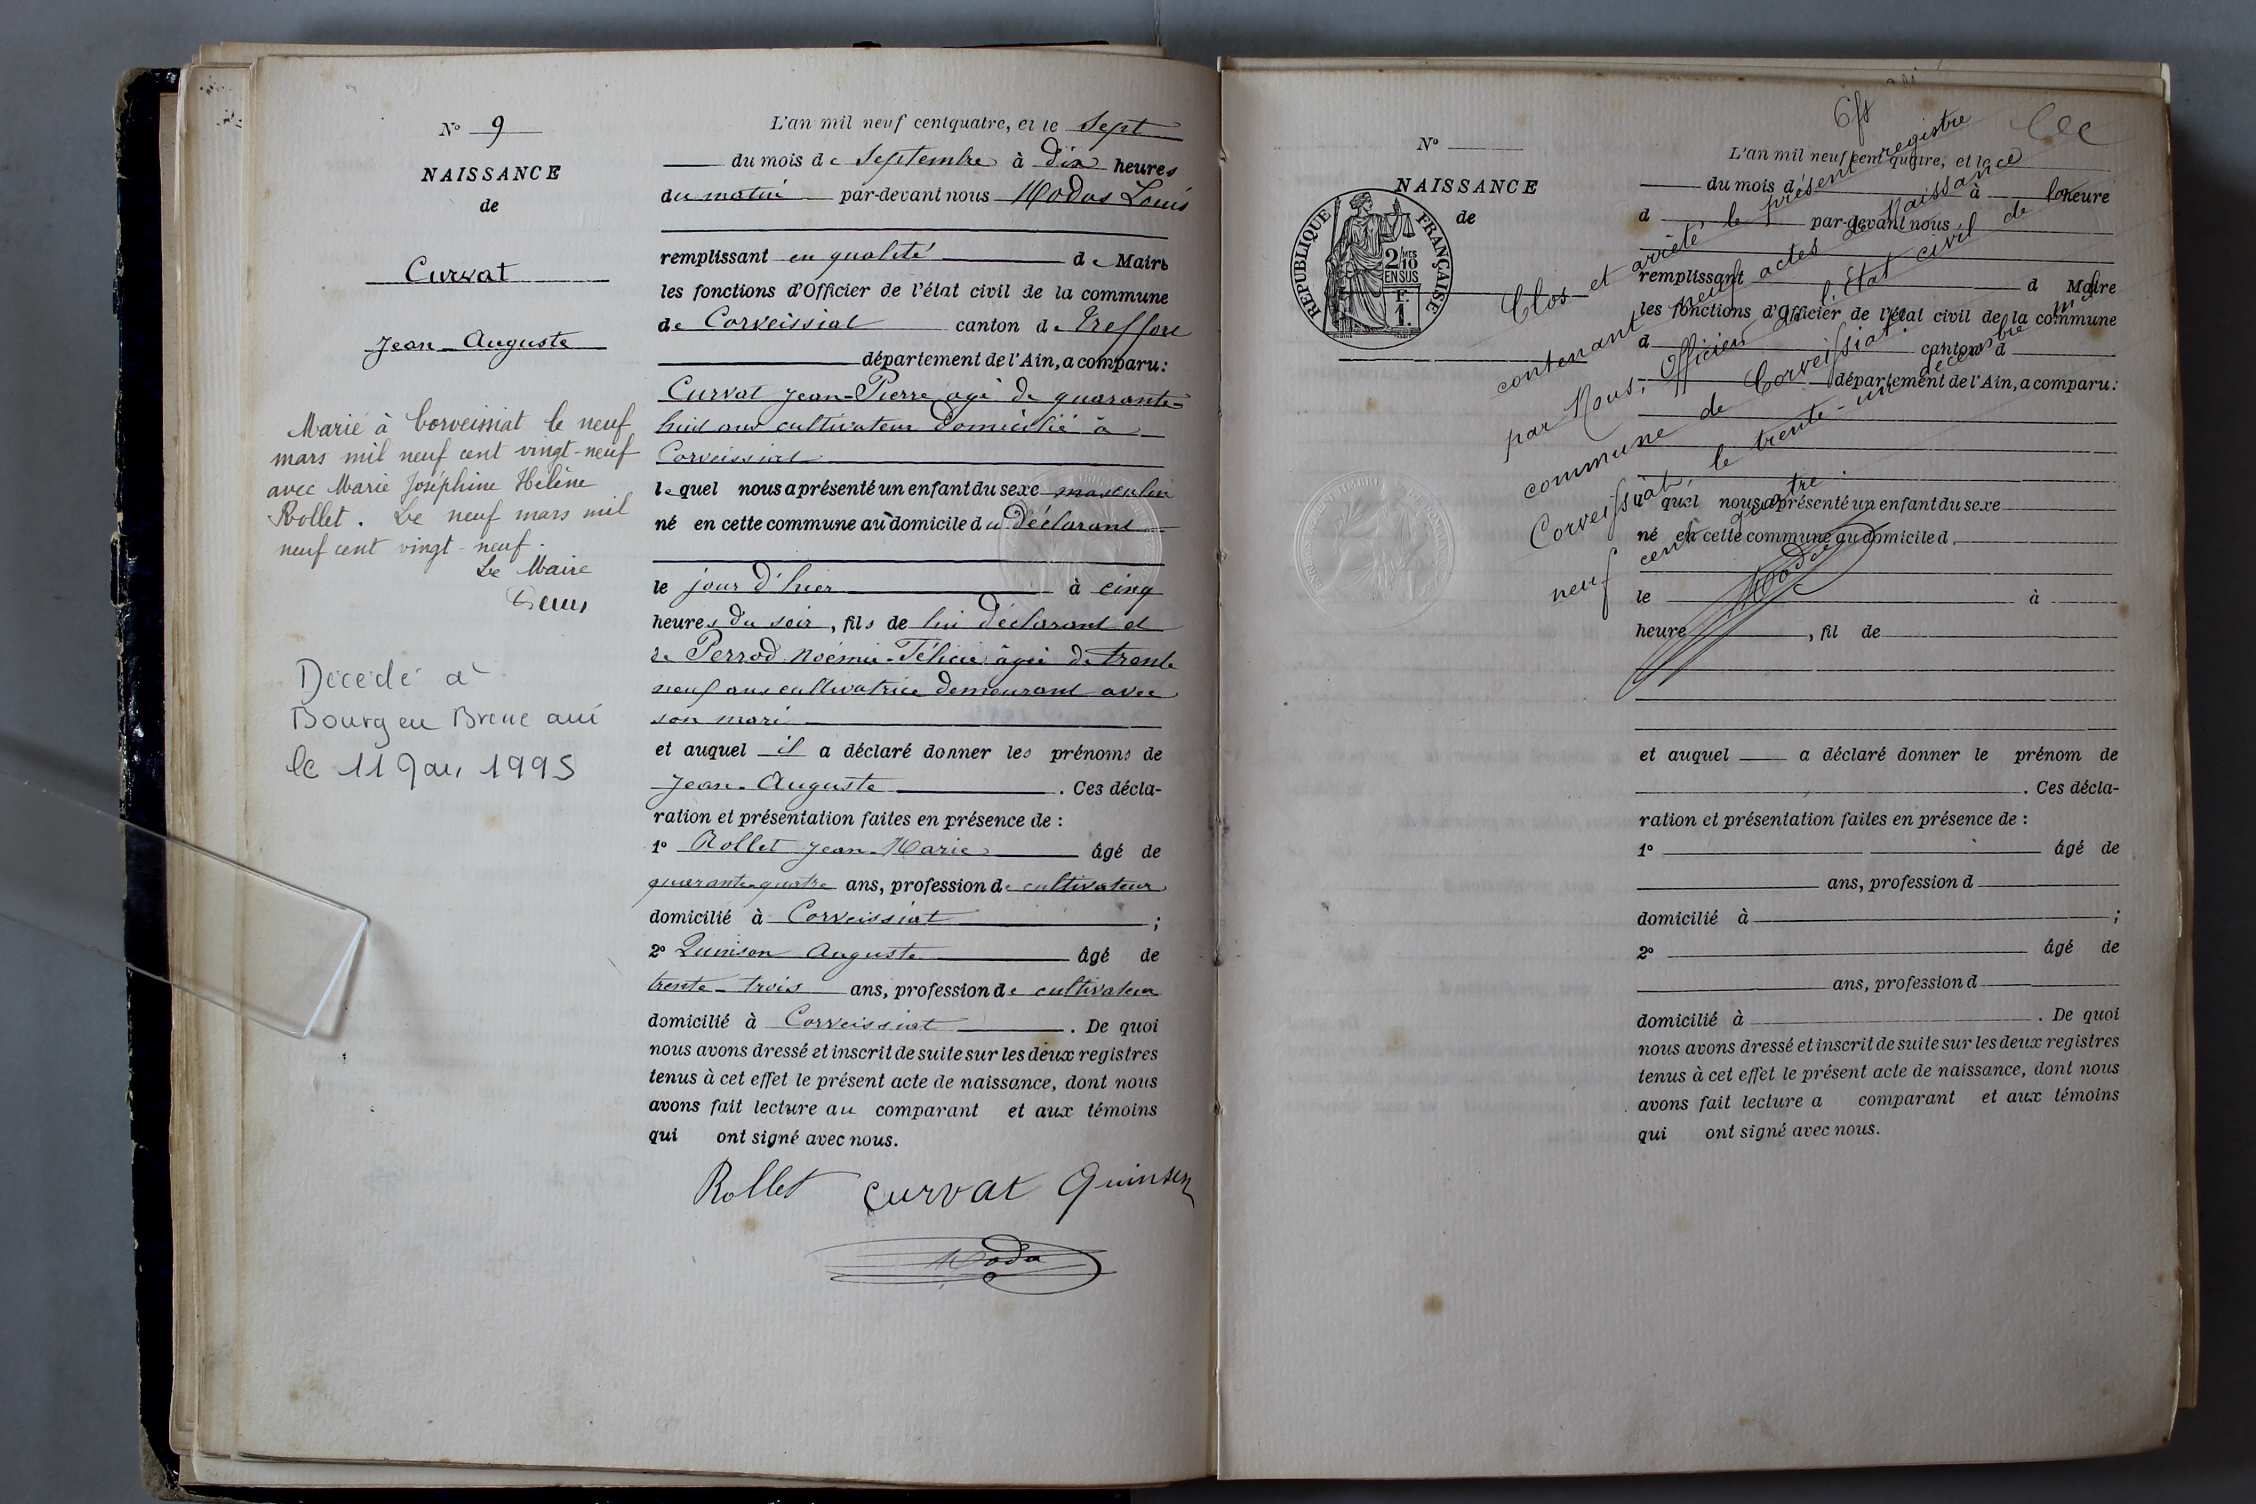 N° 9
NAISSANCE
de
Curvat
Jean-Auguste
Marié à Corveissiat le neuf
mars mil neuf cent vingt-neuf
avec Marie Joséphine Hélène
Rollet. Le neuf mars mil
neuf cent vingt-neuf.
Le Maire
Décédé à
Bourg en Bresse ain
le 11 Jan. 1995
L'an mil neuf cent quatre, et le sept
du mois de Septembre à dix heures
du matin par-devant nous Modas Louis
remplissant en qualité de Maire
les fonctions d'Officier de l'état civil de la commune
de Corveissiat canton de Treffort
département de l'Ain, a comparu:
Curvat Jean-Pierre âgé de quarante-
huit ans cultivateur domicilié à
Corveissiat
lequel nous a présenté un enfant du sexe masculin
né en cette commune au domicile du déclarant
le jour d'hier à cinq
heures du soir, fils de lui déclarant et
de Perrod Noémie-Félicie âgée de trente
neuf ans cultivatrice demeurant avec
son mari
et auquel il a déclaré donner les prénoms de
Jean-Auguste. Ces décla-
ration et présentation faites en présence de :
1° Rollet Jean-Marie âgé de
quarante-quatre ans, profession de cultivateur
domicilié à Corveissiat ;
2° Quinson Auguste âgé de
trente-trois ans, profession de cultivateur
domicilié à Corveissiat. De quoi
nous avons dressé et inscrit de suite sur les deux registres
tenus à cet effet le présent acte de naissance, dont nous
avons fait lecture au comparant et aux témoins
qui ont signé avec nous.
Rollet Curvat Quinson
Modas
N°
NAISSANCE
de
RÉPUBLIQUE FRANÇAISE
2/10mes
EN SUS
F.
1.
L'an mil neuf cent quatre, et le
du mois d à heure
d par-devant nous
remplissant d Maire
les fonctions d'Officier de l'état civil de la commune
d canton d
département de l'Ain, a comparu:
quel nous a présenté un enfant du sexe
né en cette commune au domicile d
le à
heure , fil de
et auquel a déclaré donner le prénom de
. Ces décla-
ration et présentation faites en présence de :
1° âgé de
ans, profession d
domicilié à ;
2° âgé de
ans, profession d
domicilié à . De quoi
nous avons dressé et inscrit de suite sur les deux registres
tenus à cet effet le présent acte de naissance, dont nous
avons fait lecture a comparant et aux témoins
qui ont signé avec nous.
Clos et arrêté le présent registre
contenant neuf actes de Naissance
par Nous, Officier de l'État civil de la
commune de Corveissiat.
Corveissiat, le trente-un décembre mil
neuf cent quatre.
Modas